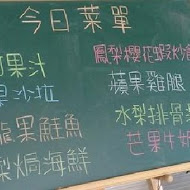 今日菜單
鳳梨櫻花蝦炒飯
蘋果雞腿
水梨排骨
芒果牛
果汁
果沙拉
龍果鮭魚
梨焗海鮮